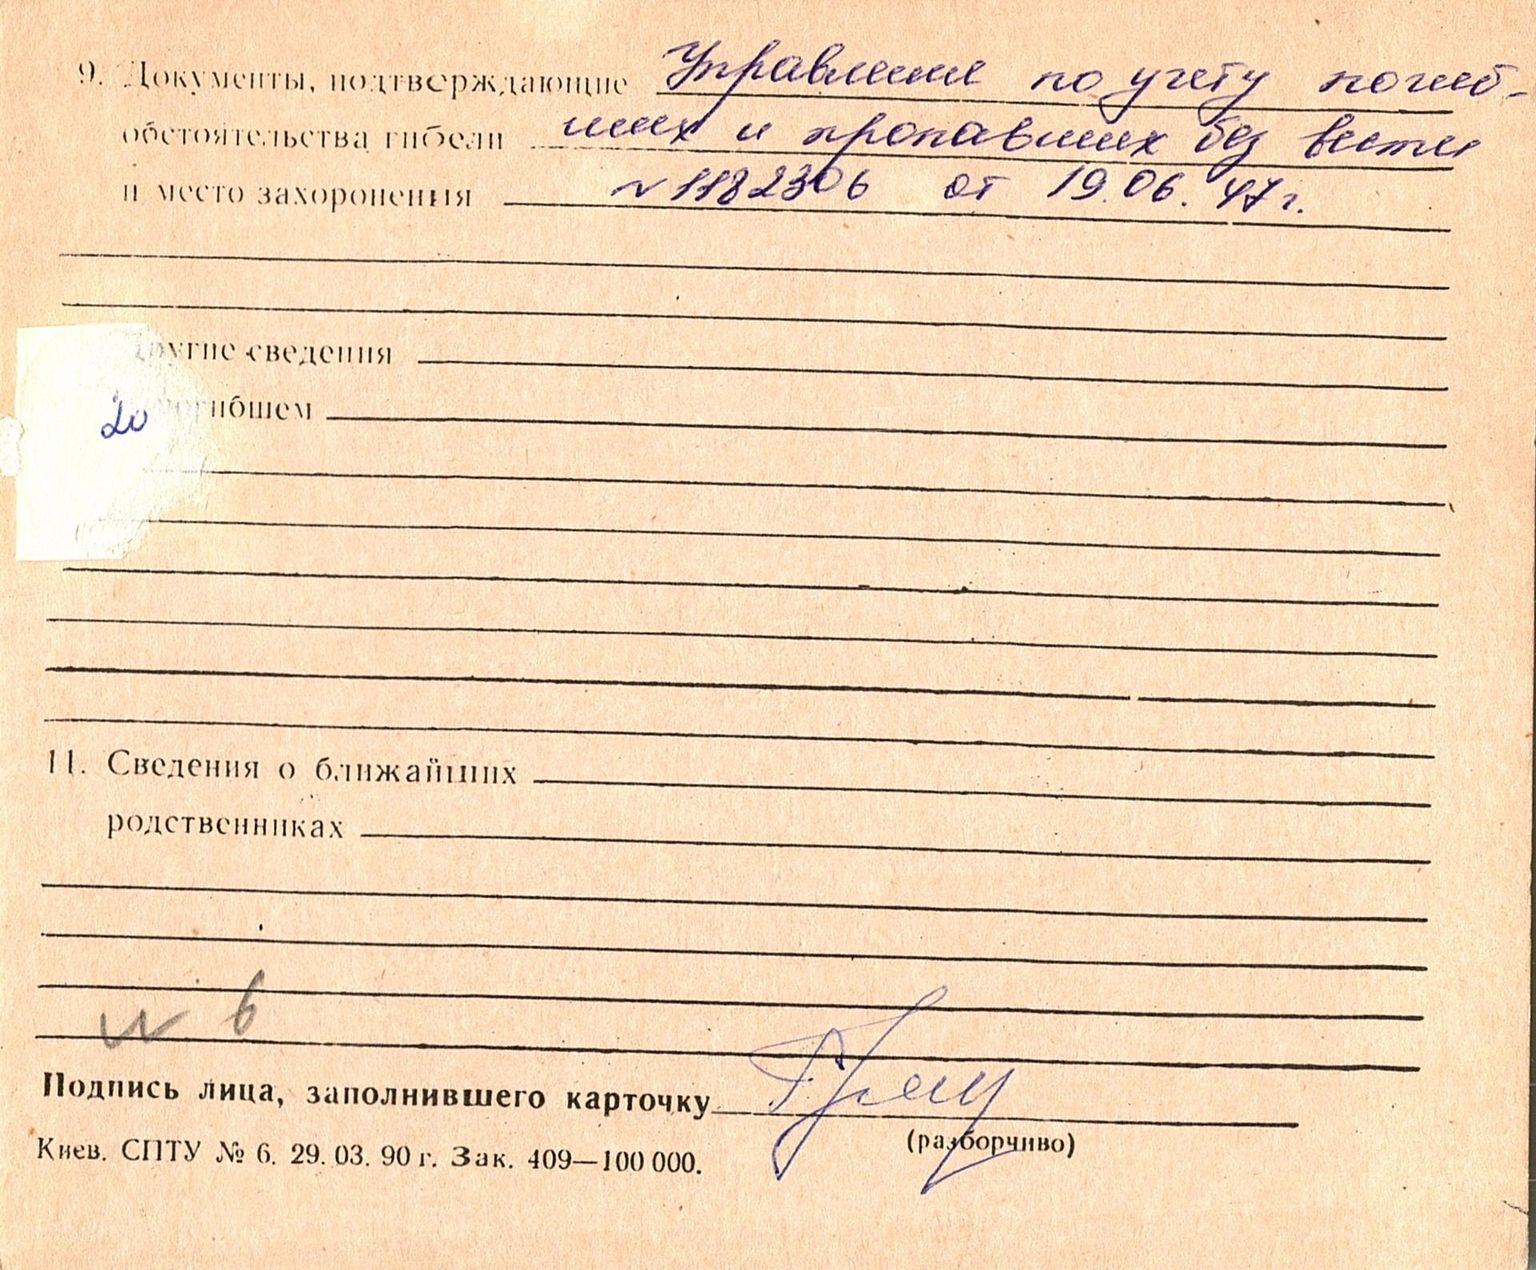 9. Документы, подтверждающие Управление по учету погиб-
обстоятельства гибели ших и пропавших без вести
и место захоронения № 1182306 от 19.06.47 г.
другие сведения
20 погибшем
11. Сведения о ближайших
родственниках
№ 6
Подпись лица, заполнившего карточку
(разборчиво)
Киев. СПТУ № 6. 29. 03. 90 г. Зак. 409—100 000.